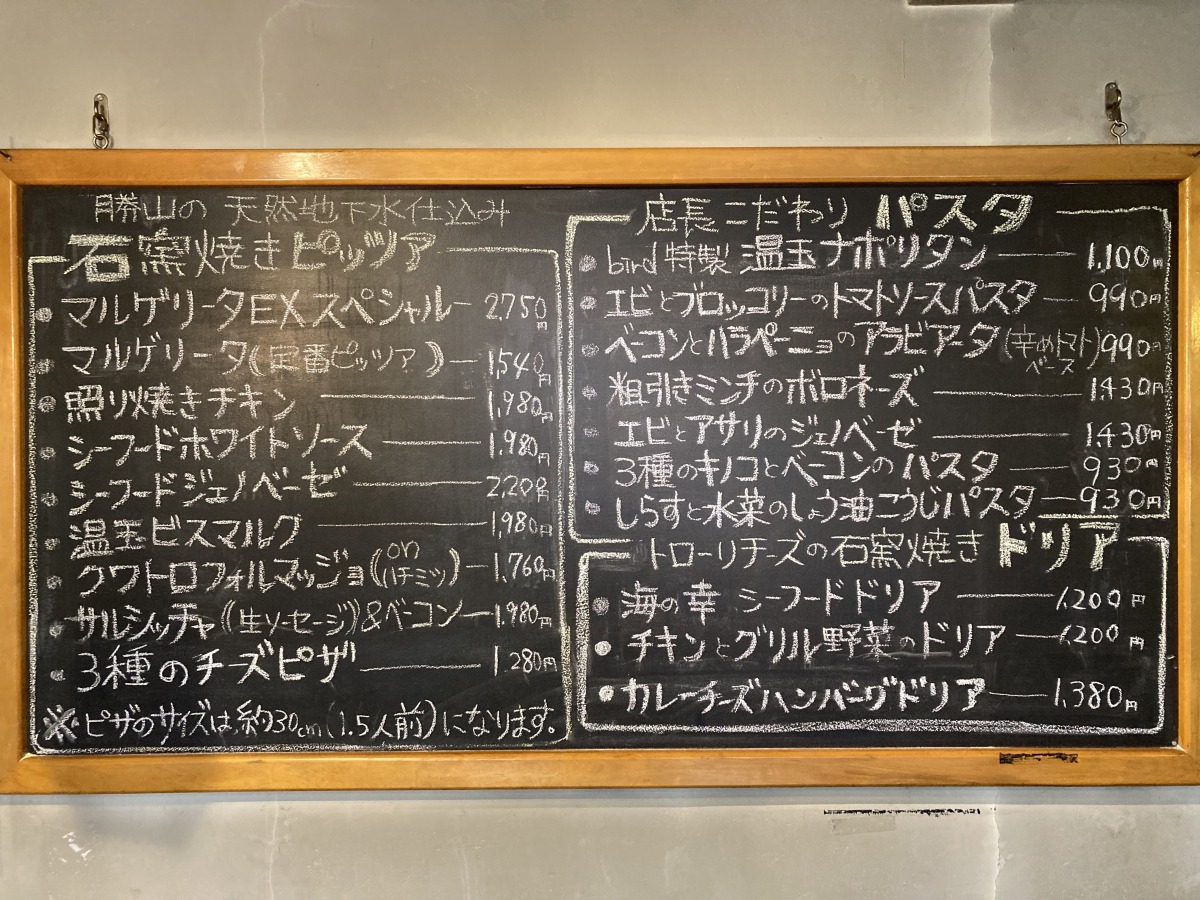 勝山の 天然地下水仕込み
石窯焼きピッツァ
・マルゲリータEXスペシャル― 2,750円
・マルゲリータ(定番ピッツァ)― 1,540円
・照り焼きチキン ― 1,980円
・シーフードホワイトソース ― 1,980円
・シーフードジェノベーゼ ― 2,220円
・温玉ビスマルク ― 1,980円
・クワトロフォルマッジョ(onハチミツ)― 1,760円
・サルシッチャ(生ソーセージ)&ベーコン― 1,980円
・3種のチーズピザ ― 1,280円
※ピザのサイズは、約30cm(1.5人前)になります。
店長こだわり パスタ
・bird 特製 温玉ナポリタン ― 1,100円
・エビとブロッコリーのトマトソースパスタ ― 990円
・ベーコンとハラペーニョのアラビアータ(辛めトマトベース)990円
・粗引きミンチのボロネーズ ― 1430円
・エビとアサリのジェノベーゼ ― 1430円
・3種のキノコとベーコンのパスタ ― 930円
・しらすと水菜のしょう油こうじパスタ ― 930円
トローリチーズの石窯焼き ドリア
・海の幸 シーフードドリア ― 1,200円
・チキンとグリル野菜のドリア ― 1,200円
・カレーチーズハンバーグドリア ― 1,380円